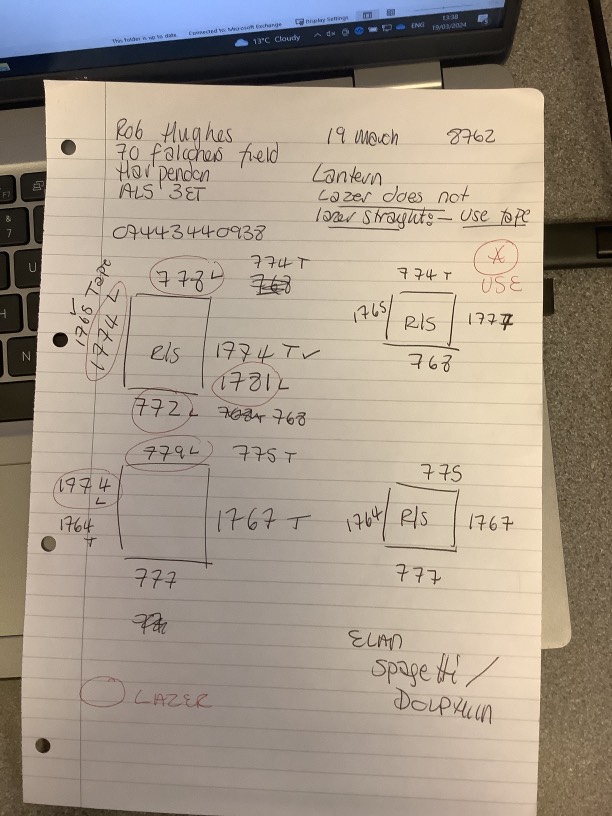 This folder is up to date.
Connected to: Microsoft Exchange
Display Settings
13°C Cloudy
ENG
13:38
19/03/2024
F7
&
7
U
H
N
Rob Hughes
19 March
8762
70 falconers field
Harpenden
AL5 3ET
Lantern
Lazer does not
lazer straights - use tape
07443440938
* USE
778 L
774 T
1765 Tape
1774 L
R/S
1774 T
1781 L
772 L
768
774 T
1765
R/S
1777
768
779 L
775 T
1774 L
1764 T
1767 T
777
775
1764
R/S
1767
777
ELAN
Spagetti /
DOLPHIN
LAZER